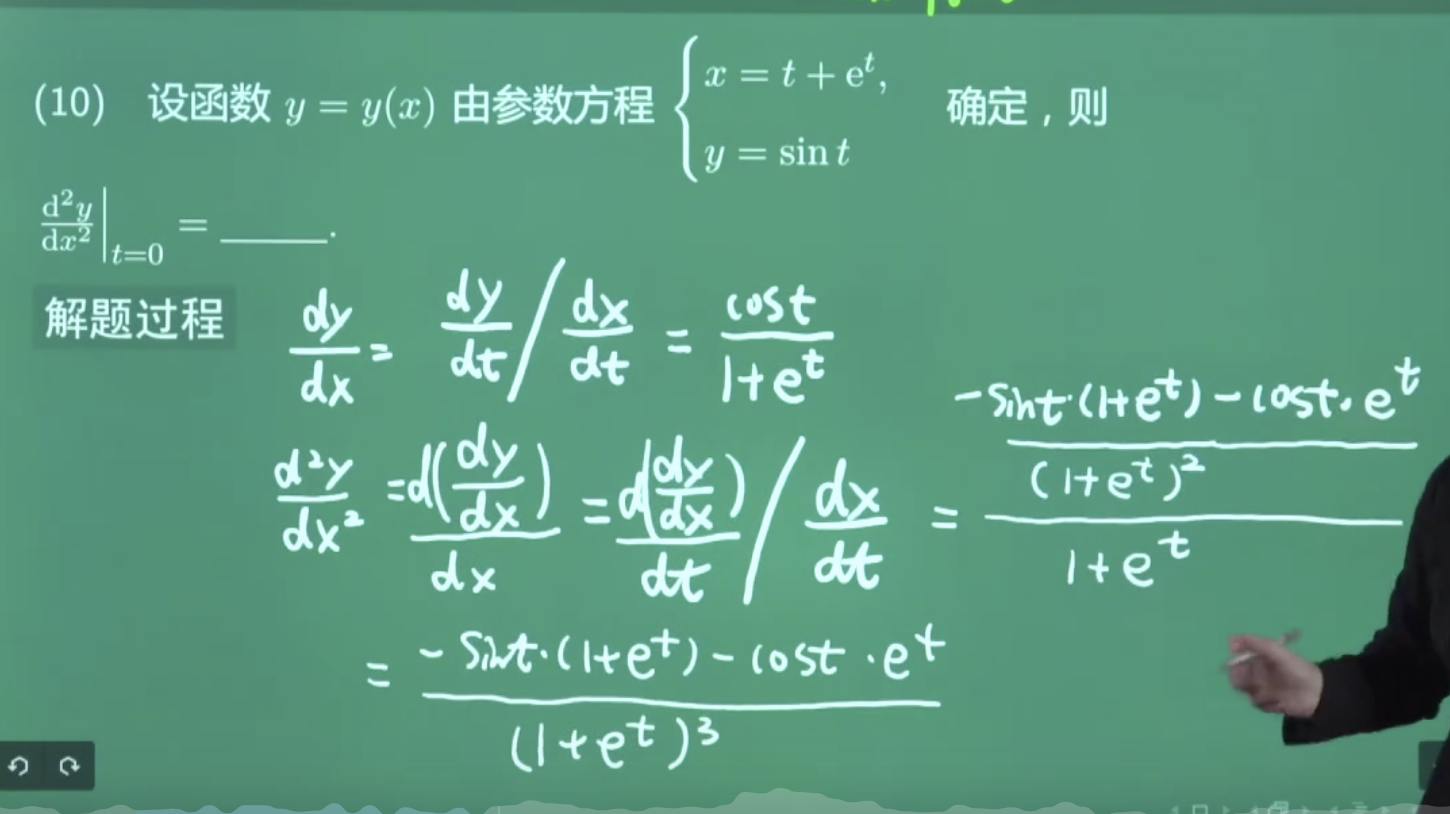 (10) 设函数 y = y(x) 由参数方程 { x = t + e^t, y = sin t 确定，则
d²y/dx² |_{t=0} = ______.
解题过程
dy/dx = dy/dt / dx/dt = cost/(1+e^t)
d²y/dx² = d(dy/dx)/dx = d(dy/dx)/dt / dx/dt = ((-sint·(1+e^t)-cost·e^t)/(1+e^t)²)/(1+e^t)
= (-sint·(1+e^t)-cost·e^t)/(1+e^t)³